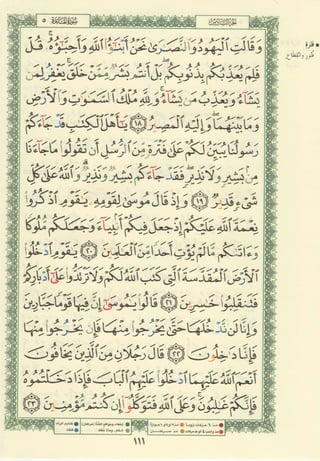 سُورَةُ المَائِدَةِ ٥
وَقَالَتِ ٱلۡيَهُودُ وَٱلنَّصَٰرَىٰ نَحۡنُ أَبۡنَٰٓؤُاْ ٱللَّهِ وَأَحِبَّٰٓؤُهُۥۚ قُلۡ
فَلِمَ يُعَذِّبُكُم بِذُنُوبِكُمۖ بَلۡ أَنتُم بَشَرٞ مِّمَّنۡ خَلَقَۚ يَغۡفِرُ لِمَن
يَشَآءُ وَيُعَذِّبُ مَن يَشَآءُۚ وَلِلَّهِ مُلۡكُ ٱلسَّمَٰوَٰتِ وَٱلۡأَرۡضِ
وَمَا بَيۡنَهُمَاۖ وَإِلَيۡهِ ٱلۡمَصِيرُ ١٨ يَٰٓأَهۡلَ ٱلۡكِتَٰبِ قَدۡ جَآءَكُمۡ
رَسُولُنَا يُبَيِّنُ لَكُمۡ عَلَىٰ فَتۡرَةٖ مِّنَ ٱلرُّسُلِ أَن تَقُولُواْ مَا جَآءَنَا
مِنۢ بَشِيرٖ وَلَا نَذِيرٖۖ فَقَدۡ جَآءَكُم بَشِيرٞ وَنَذِيرٞۗ وَٱللَّهُ عَلَىٰ كُلِّ
شَيۡءٖ قَدِيرٞ ١٩ وَإِذۡ قَالَ مُوسَىٰ لِقَوۡمِهِۦ يَٰقَوۡمِ ٱذۡكُرُواْ
نِعۡمَةَ ٱللَّهِ عَلَيۡكُمۡ إِذۡ جَعَلَ فِيكُمۡ أَنۢبِيَآءَ وَجَعَلَكُم مُّلُوكٗا
وَءَاتَىٰكُم مَّا لَمۡ يُؤۡتِ أَحَدٗا مِّنَ ٱلۡعَٰلَمِينَ ٢٠ يَٰقَوۡمِ ٱدۡخُلُواْ
ٱلۡأَرۡضَ ٱلۡمُقَدَّسَةَ ٱلَّتِي كَتَبَ ٱللَّهُ لَكُمۡ وَلَا تَرۡتَدُّواْ عَلَىٰٓ أَدۡبَارِكُمۡ
فَتَنقَلِبُواْ خَٰسِرِينَ ٢١ قَالُواْ يَٰمُوسَىٰٓ إِنَّ فِيهَا قَوۡمٗا جَبَّارِينَ
وَإِنَّا لَن نَّدۡخُلَهَا حَتَّىٰ يَخۡرُجُواْ مِنۡهَا فَإِن يَخۡرُجُواْ مِنۡهَا
فَإِنَّا دَٰخِلُونَ ٢٢ قَالَ رَجُلَانِ مِنَ ٱلَّذِينَ يَخَافُونَ
أَنۡعَمَ ٱللَّهُ عَلَيۡهِمَا ٱدۡخُلُواْ عَلَيۡهِمُ ٱلۡبَابَ فَإِذَا دَخَلۡتُمُوهُ
فَإِنَّكُمۡ غَٰلِبُونَۚ وَعَلَى ٱللَّهِ فَتَوَكَّلُوٓاْ إِن كُنتُم مُّؤۡمِنِينَ ٢٣
١١١